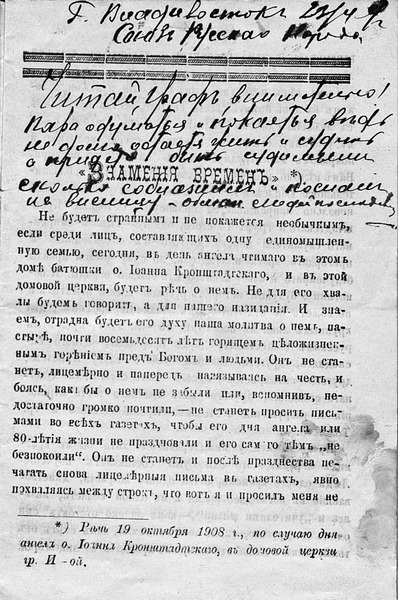 Г. Владивостокъ
Союзъ Русскаго Народа
Читай Графъ внимательно!
Пора одуматься и покаяться вѣдь
не долго остается жить и
«ЗНАМЕНІЯ ВРЕМЕНЪ» *)
Не будетъ страннымъ и не покажется необычнымъ,
если среди лицъ, составляющихъ одну единомышлен-
ную семью, сегодня, въ день ангела чтимаго въ этомъ
домѣ батюшки о. Іоанна Кронштадскаго, и въ этой
домовой церкви, будетъ рѣчь о немъ. Не для его хва-
лы будемъ говорить, а для нашего назиданія. И зна-
емъ, отрадна будетъ его духу наша молитва о немъ, па-
стырѣ, почти восемьдесятъ лѣтъ горящемъ цѣложизнен-
нымъ горѣніемъ предъ Богомъ и людьми. Онъ не ста-
нетъ, лицемѣрно и напередъ навязываясь на честь, и
боясь, какъ бы о немъ не забыли или, вспомнивъ, не-
достаточно громко почтили,—не станетъ просить пись-
мами во всѣхъ газетахъ, чтобы его дня ангела или
80-лѣтія жизни не праздновали и его самого тѣмъ „не
безпокоили". Онъ не станетъ и послѣ празднества пе-
чатать снова лицемѣрныя письма въ газетахъ, явно
похваляясь между строкъ, что вотъ я и просилъ меня не
*) Рѣчь 19 октября 1908 г., по случаю дня
ангела о. Іоанна Кронштадтскаго, въ домовой церкви
гр. И—ой.